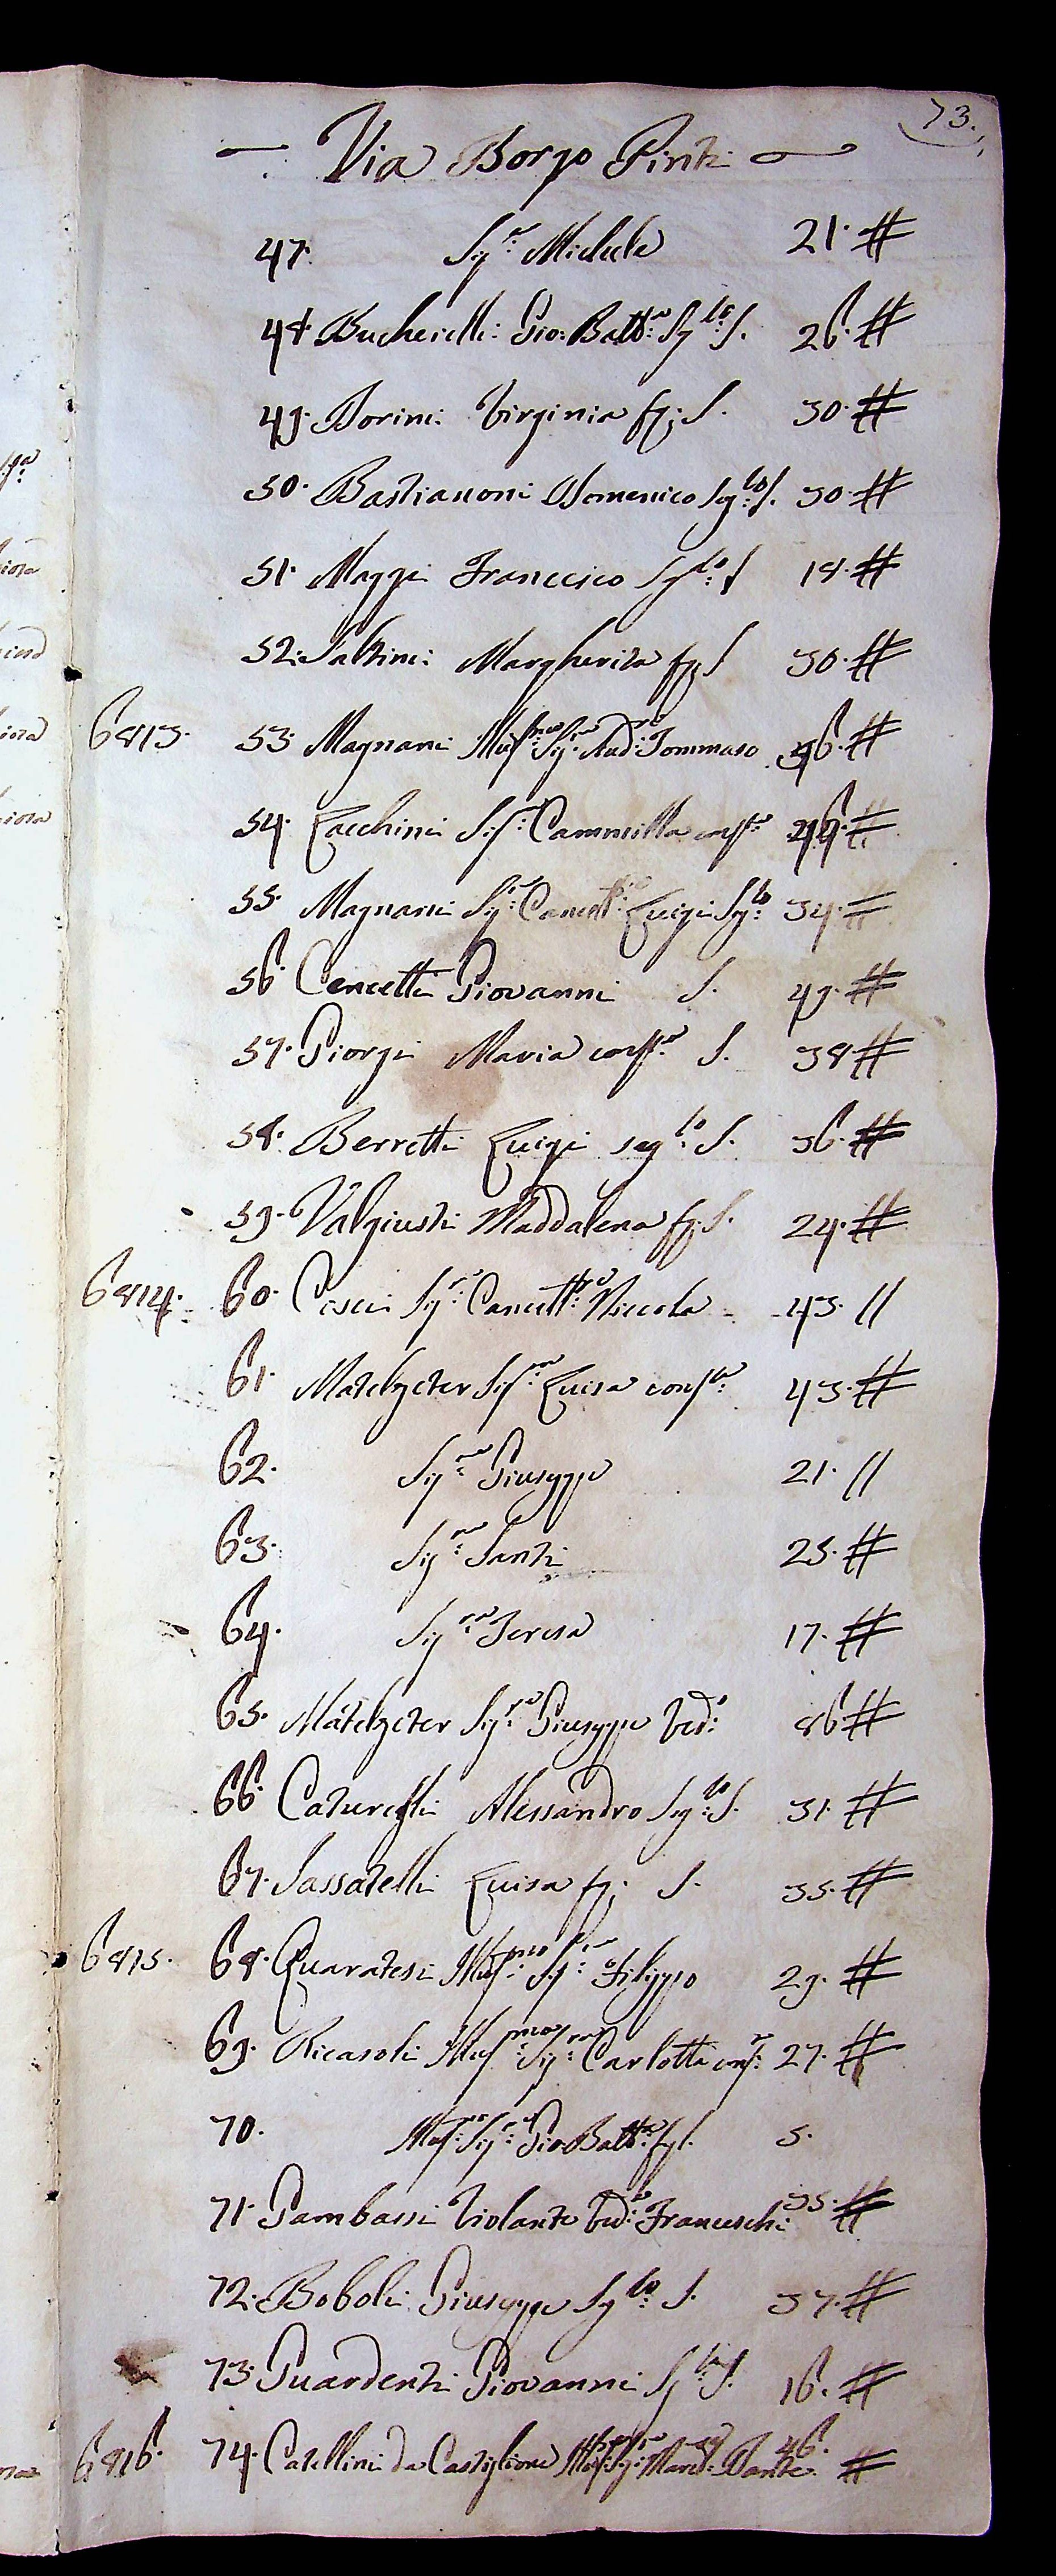 73.
Via Borgo Pinti
47. Sig.r Michele 21. #
48 Bucherelli: Gio: Batt:a Sg.lo S. 26. #
49. Borini Virginia fg: S. 30. #
50. Bastianoni Domenico Sg.lo S. 30. #
51. Maggi Francesco Sg.lo S 18. #
52. Saltini Margherita fg. S 30. #
6813. 53. Magnani Illus.mo Sig.r Aud:re Tommaso #
54. Zacchini Sig.ra Cammilla cons.te #
55. Magnani Sig.r Cancell:re Luigi Sg.lo 34. #
56. Cencetti Giovanni S. 49. #
57. Giorgi Maria cons.te S. 38 #
58. Berretti Luigi seg.lo S. 36. #
59. Valgiusti Maddalena fg. S. 24. #
6814. 60. Cesci Sig.r Cancell:re Niccola 43. //
61. Matelzeter Sig.ra Luisa cons.te 43. #
62. Sig.re Giuseppe 21. //
63. Sig.re Santi 23. #
64. Sig.ra Teresa 17. #
65. Matelzeter Sig.re Giuseppe Ved:o 86 #
66. Caturelli Alessandro Sg.lo S. 31. #
67. Sassatelli Luisa fg: S. 35. #
6815. 68. Quaratesi Illus.mo Sig.r Filippo 29. #
69. Ricasoli Illus.ma Sig.ra Carlotta cons.te 27. #
70. Illus.mo Sig.r Gio Batt:a fgl. 5.
71. Gambassi Violante Ved:a Franceschi 55. #
72. Boboli Giuseppe Sg.lo S. 37. #
73. Guardenti Giovanni Sg.lo S. 16. #
6816. 74. Catellini da Castiglione Illus.mo Sig.r March.e Dante 46. #